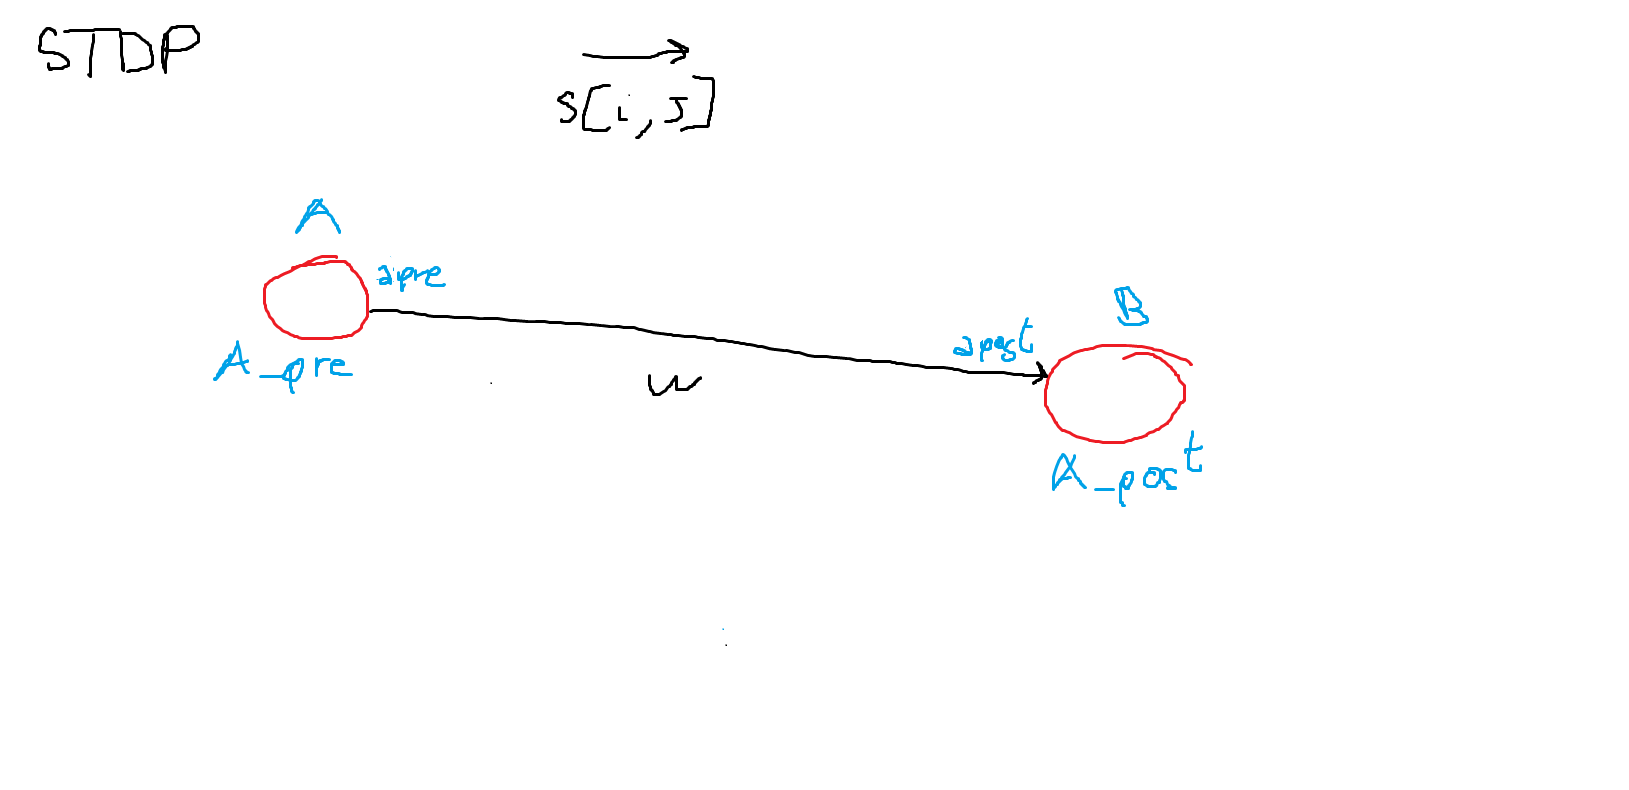 STDP
s[i,J]
A
apre
A_pre
B
apost
w
A_post